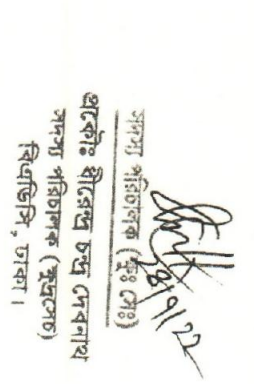 সদস্য পরিচালক (ক্ষুঃ সেঃ)
প্রকৌঃ ধীরেন্দ্র চন্দ্র দেবনাথ
সদস্য পরিচালক (ক্ষুদ্রসেচ)
বিএডিসি, ঢাকা।